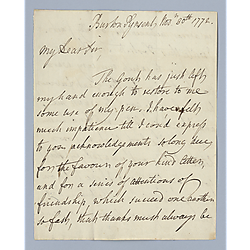 Burton Pynsent, Nov. 30th 1772.
My Dear Sir
The Gout has just left
my hand enough to restore to me
some use of my pen, I have felt
much impatience till I could express
to you acknowledgements so long due,
for the favour of your kind letter,
and for a series of attentions of
friendship which succeed one another
so fast, that thanks must always be